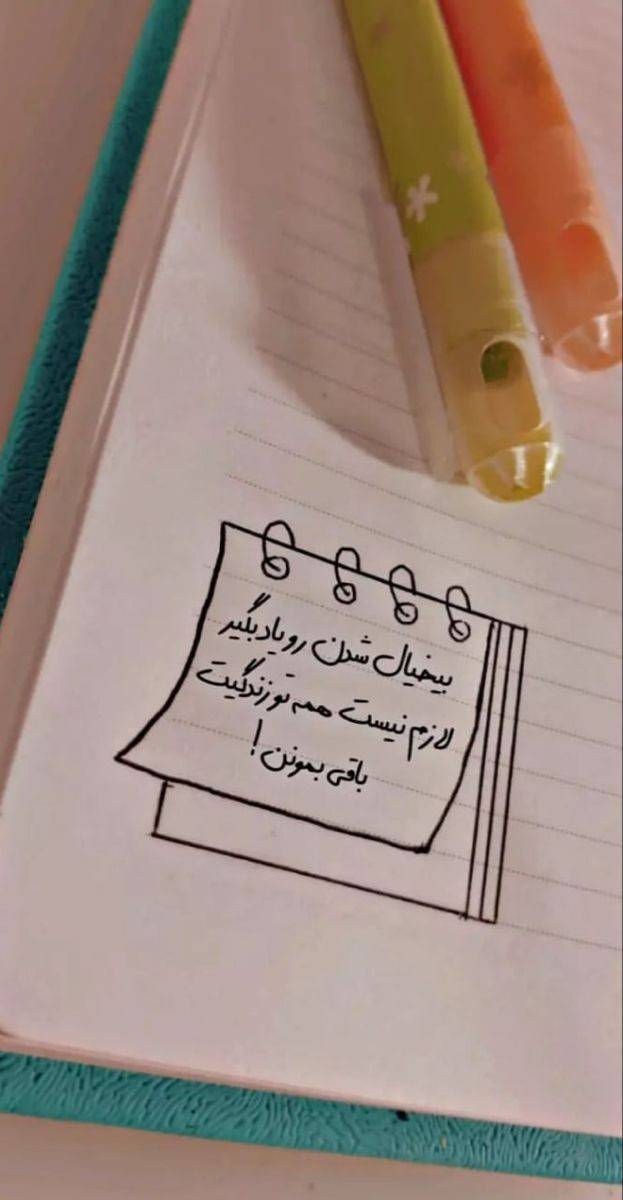 بیخیال شدن رو یاد بگیر
لازم نیست همه تو زندگیت
باقی بمونن!